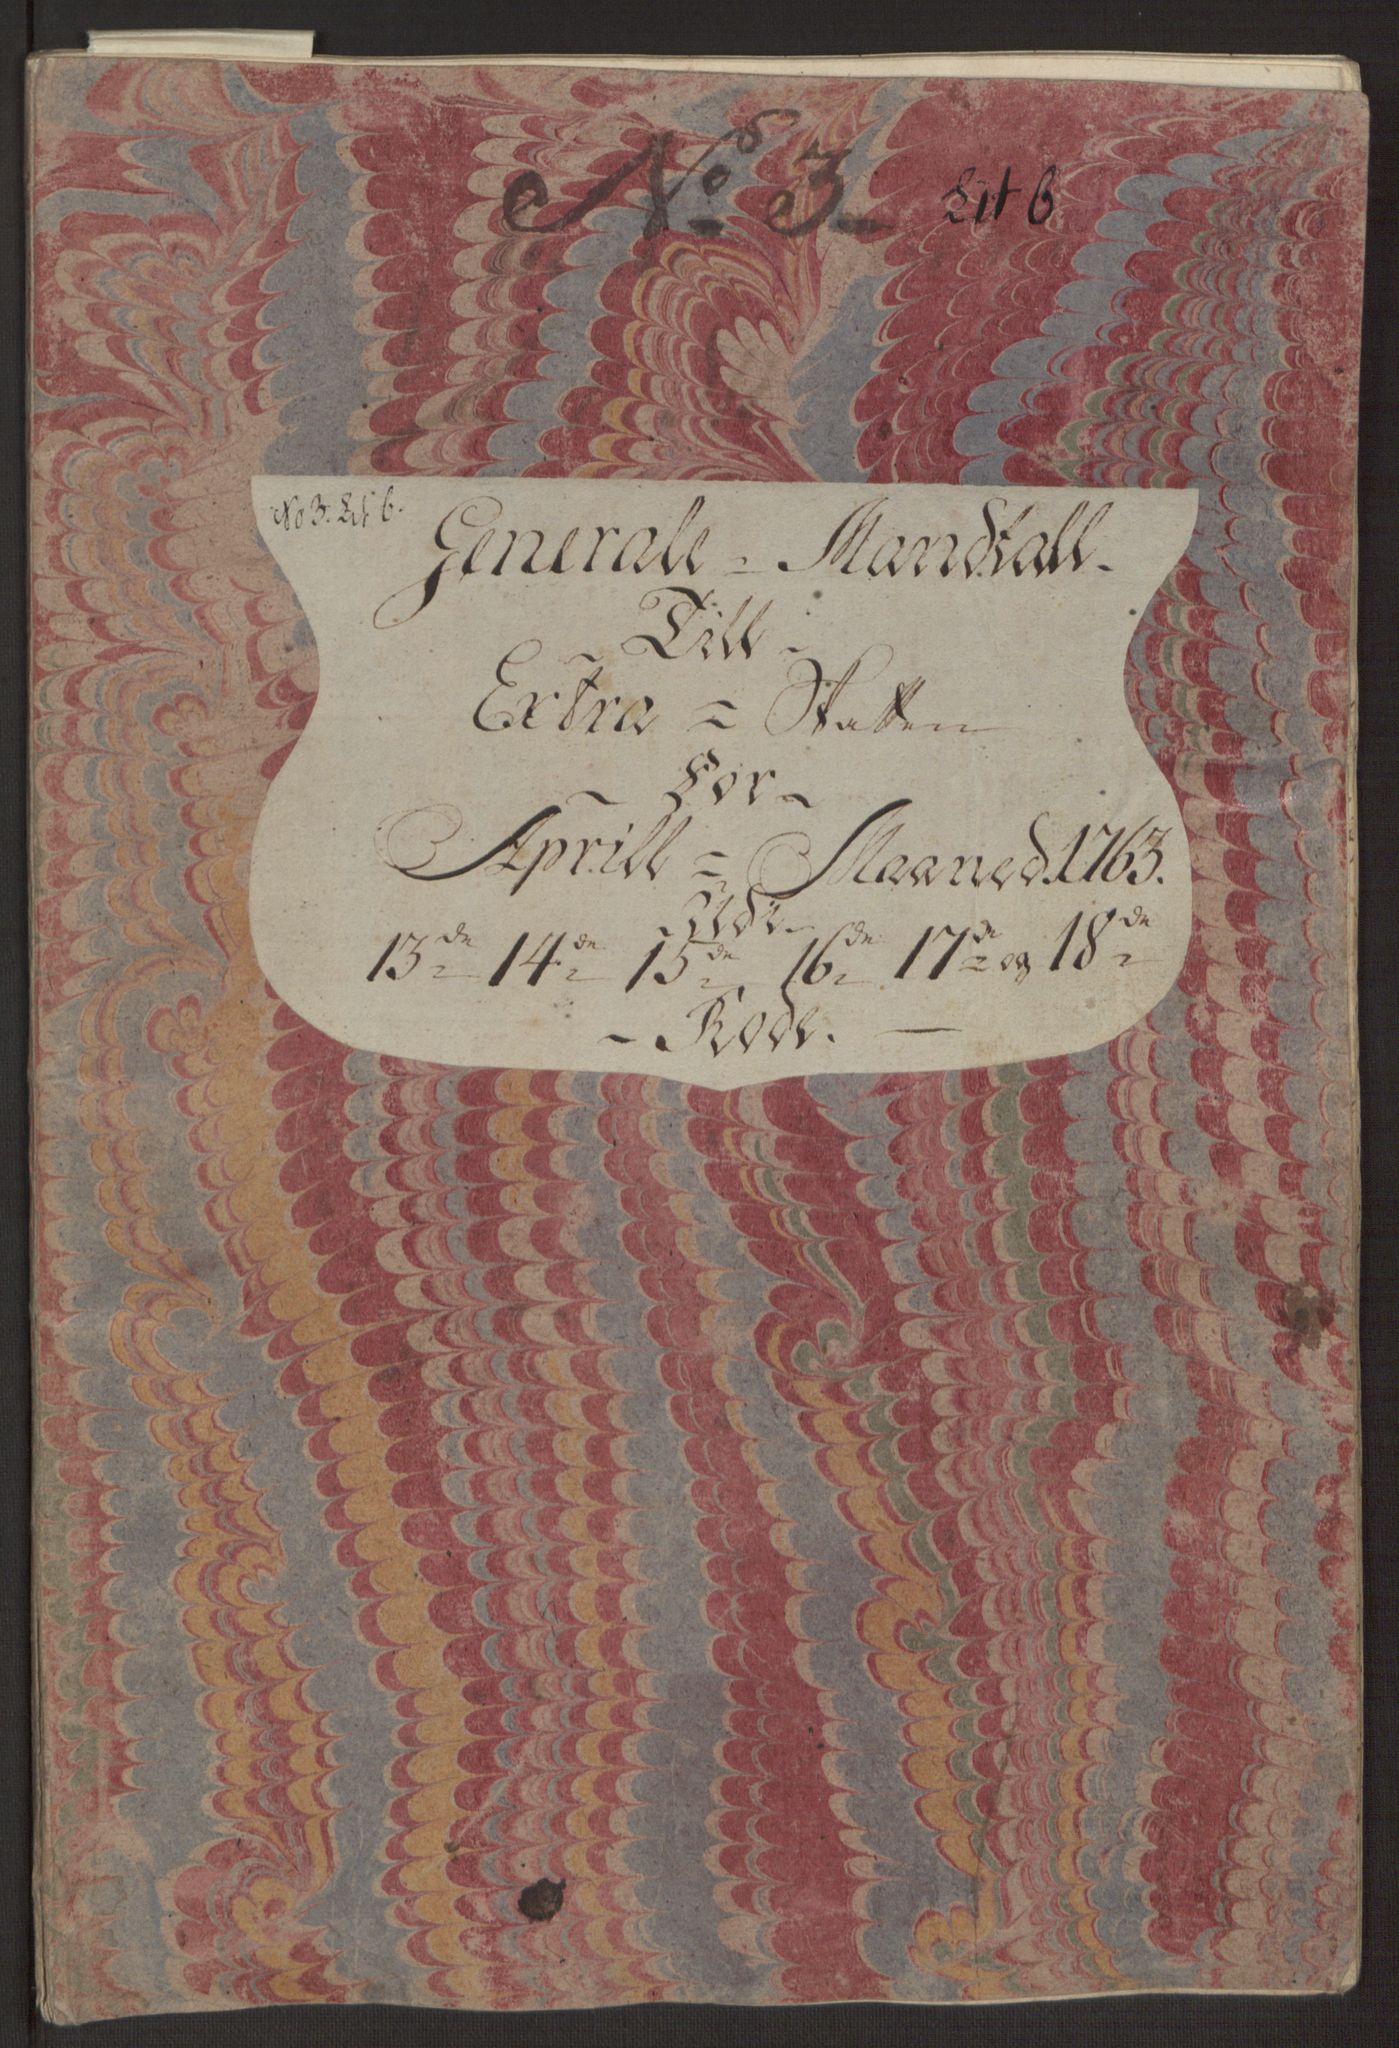 No 3 Lit b
No 3. Lit b.
Generale = Mandtall
Till
Extra = Skatten
For
Aprill = Maaned. 1763.
13de 14de 15de 16de 17de og 18de
Rode.